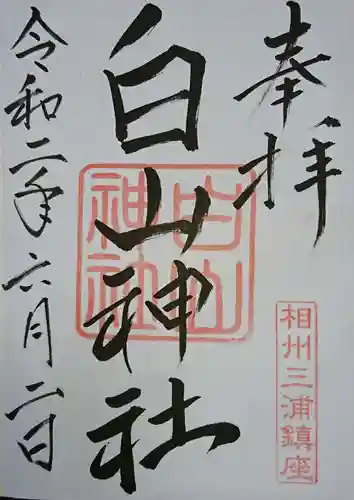 奉拝
相州三浦鎮座
白山神社
白山神社
令和二年六月二日